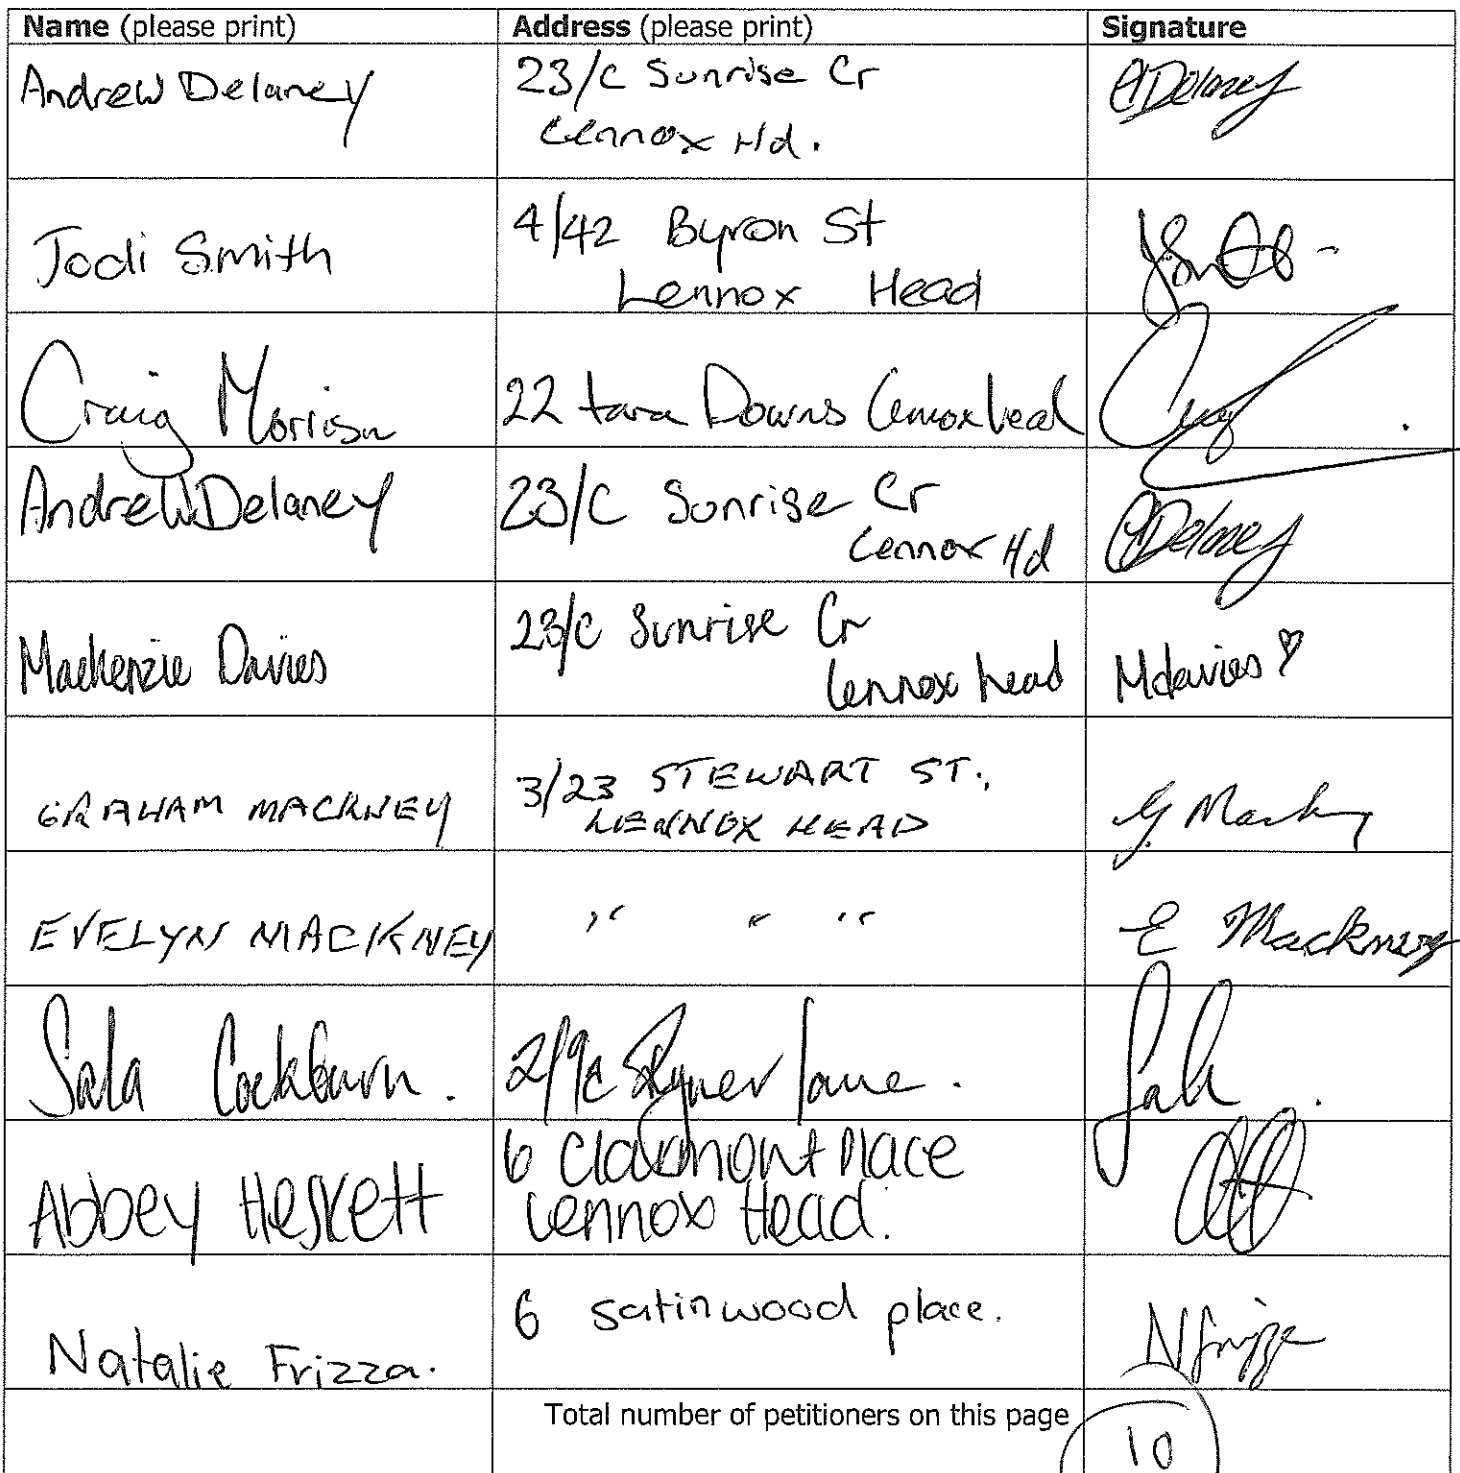 Name (please print) Address (please print) Signature
Andrew Delaney 23/C Sunrise Cr ADelaney
Lennox Hd.
Jodi Smith 4/42 Byron St
Lennox Head
Craig Morrison 22 tara Downs Lennox head Craig
Andrew Delaney 23/C Sunrise Cr ADelaney
Lennox Hd
Mackenzie Davies 23/C Sunrise Cr Mdavies
Lennox head
GRAHAM MACKNEY 3/23 STEWART ST. G Mackney
LENNOX HEAD
EVELYN MACKNEY " " " E Mackney
Sala Cockburn. 2/9c Rayner lane.
Abbey Heskett 6 Claremont Place
Lennox Head.
Natalie Frizza. 6 satinwood place. N frizza
Total number of petitioners on this page 10